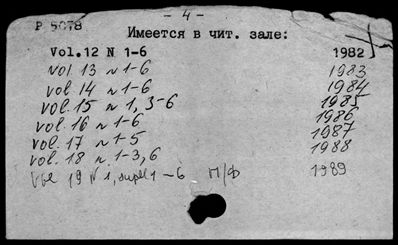 - 4 -
P 5078
Имеется в чит. зале:
Vol.12 N 1-6 1982
vol. 13 N 1-6 1983
vol. 14 N 1-6 1984
vol. 15 N 1, 3-6 1985
vol. 16 N 1-6 1986
vol. 17 N 1-5 1987
vol. 18 N 1-3, 6 1988
vol 19 N 1, suppl 1-6 П/Ф 1989